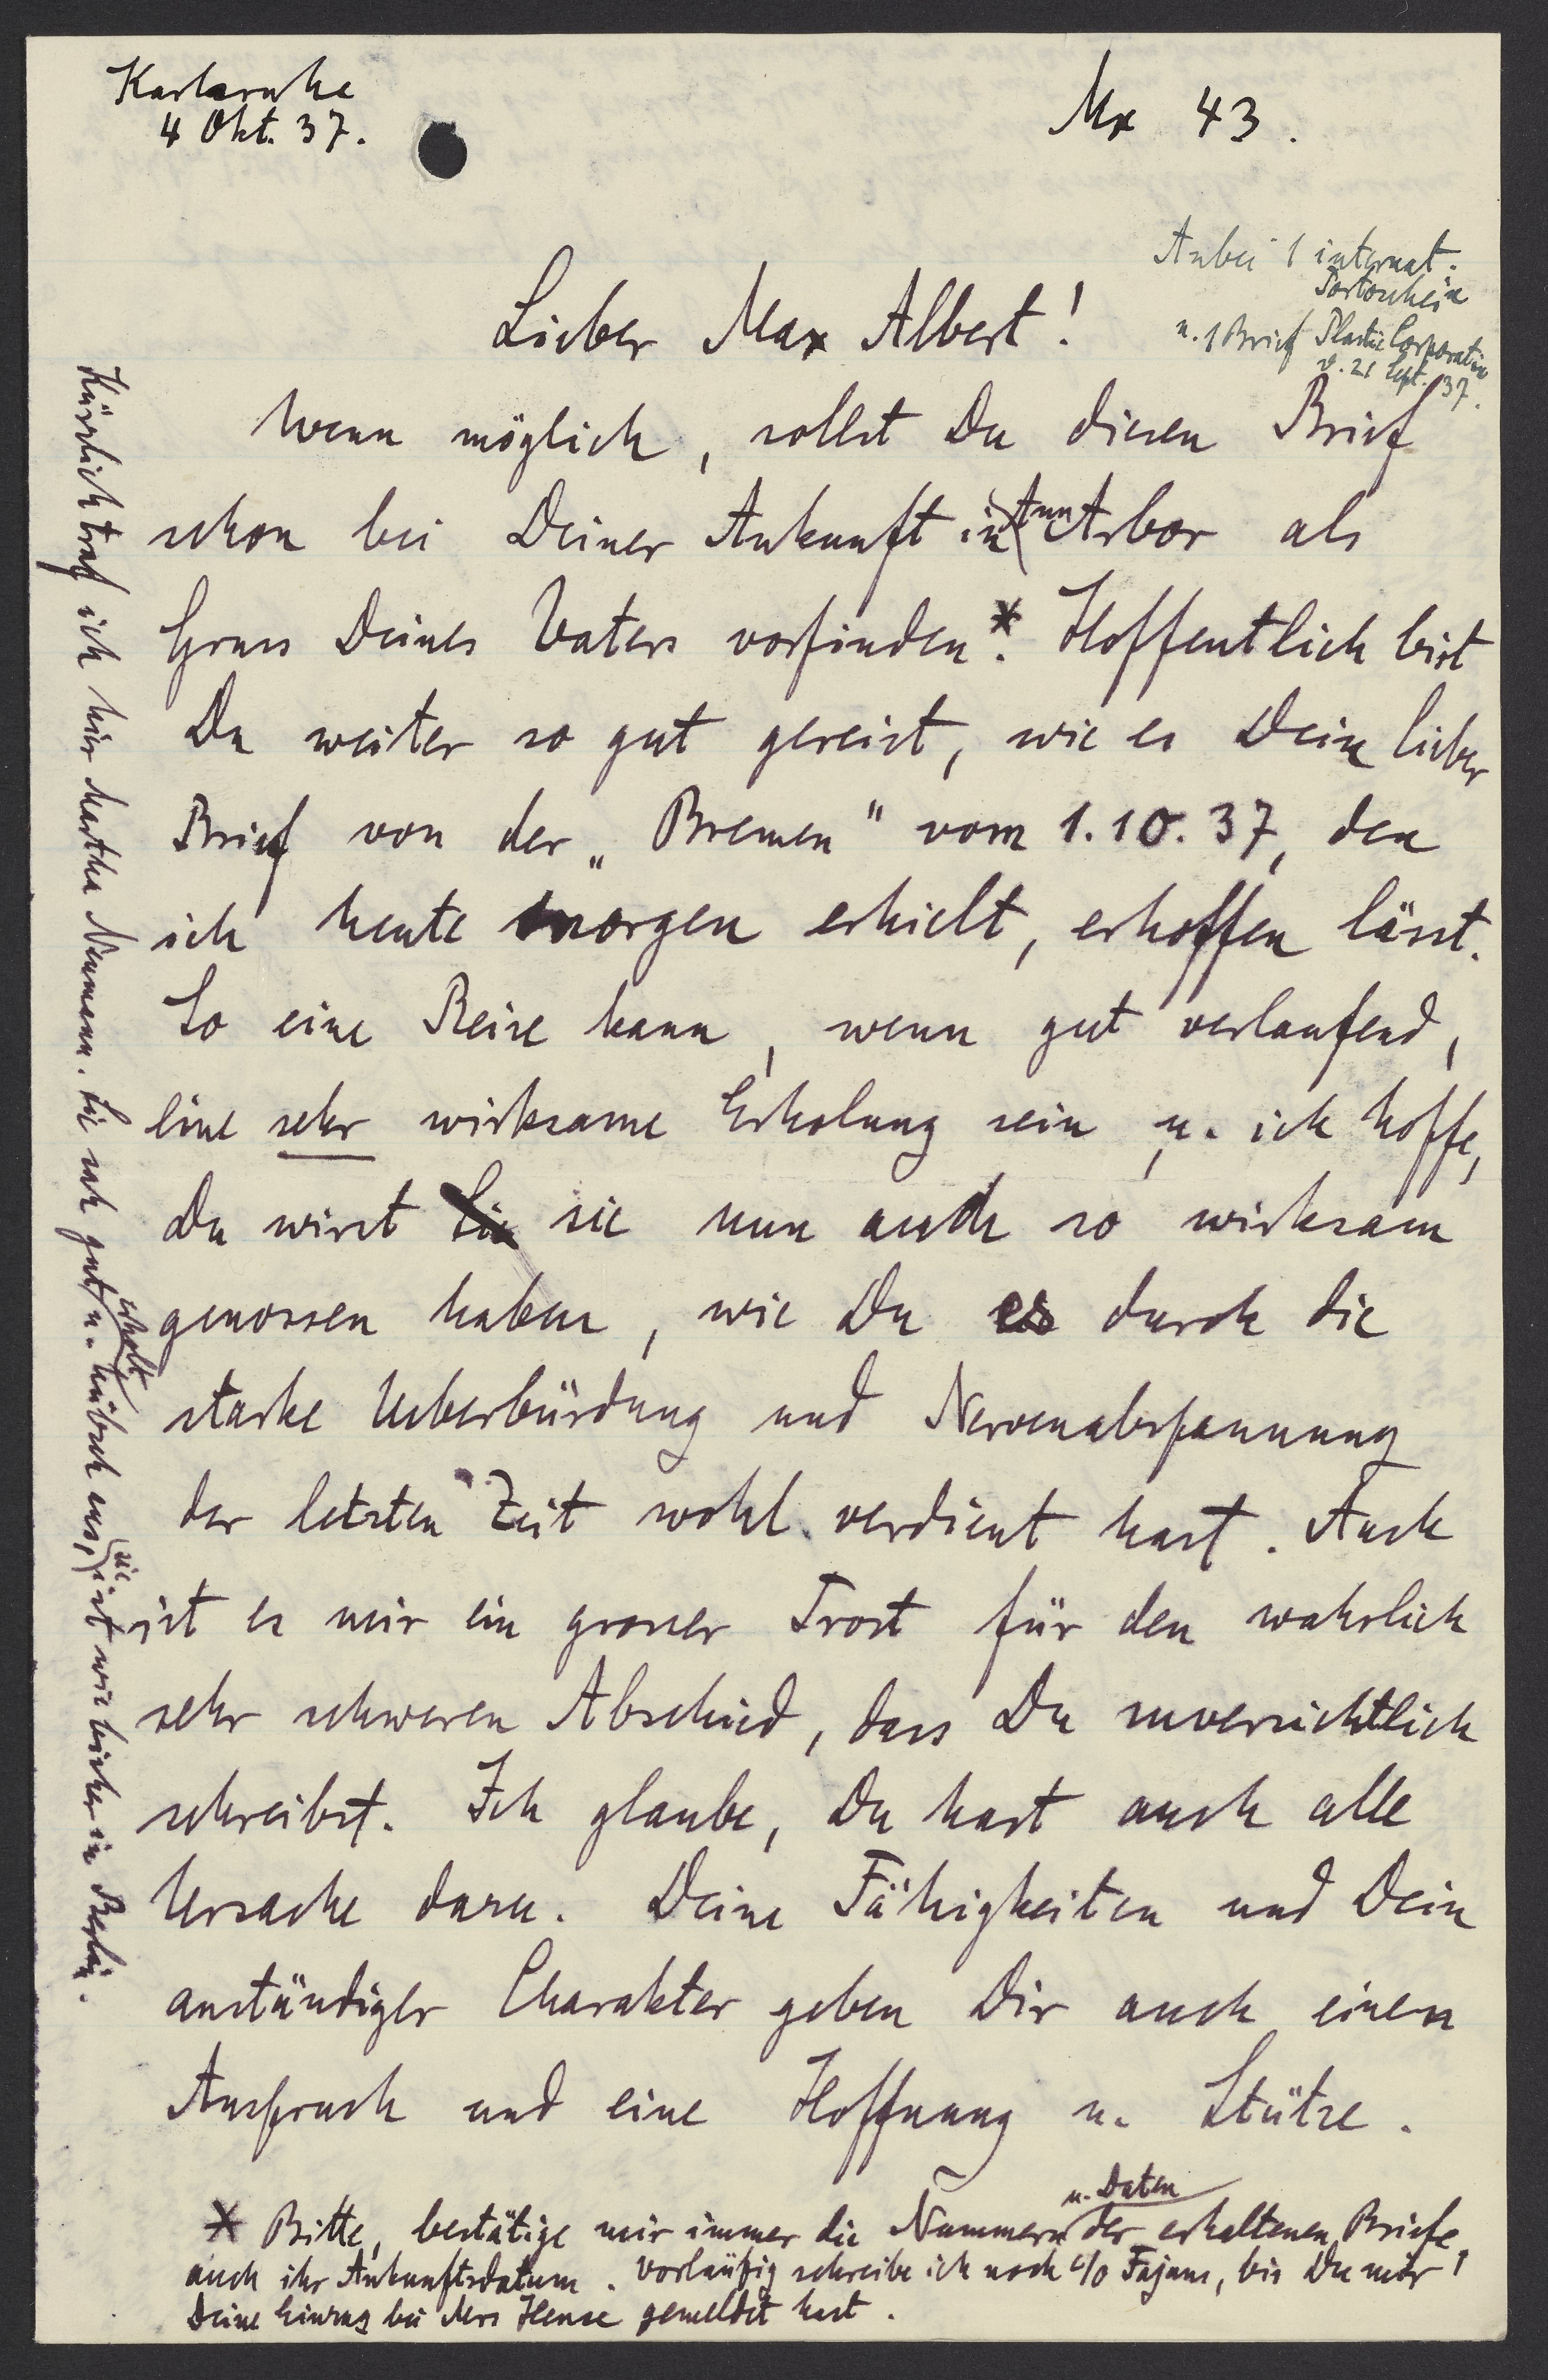 Karlsruhe
4 Okt. 37.
Mx 43.
Anbei 1 internat.
Portoschein
u. 1 Brief Plastic Corporation
v. 21 Sept. 37.
Lieber Max Albert!
Wenn möglich, sollst Du diesen Brief
schon bei Deiner Ankunft in Ann Arbor als
Gruss Deines Vaters vorfinden*. Hoffentlich bist
Du weiter so gut gereist, wie es Dein lieber
Brief von der „Bremen" vom 1.10.37, den
ich heute morgen erhielt, erhoffen lässt.
So eine Reise kann, wenn gut verlaufend,
eine sehr wirksame Erholung sein, u. ich hoffe,
Du wirst sie nun auch so wirksam
genossen haben, wie Du es durch die
starke Ueberbürdung und Nervenabspannung
der letzten Zeit wohl verdient hast. Auch
ist es mir ein grosser Trost für den wahrlich
sehr schweren Abschied, dass Du zuversichtlich
schreibst. Ich glaube, Du hast auch alle
Ursache dazu. Deine Fähigkeiten und Dein
anständiger Charakter geben Dir auch einen
Anspruch und eine Hoffnung u. Stütze.
* Bitte, bestätige mir immer die Nummern u. Daten der erhaltenen Briefe,
auch ihr Ankunftsdatum. Vorläufig schreibe ich noch c/o Fajans, bis Du mir
Deine Einzug bei Mrs Hense gemeldet hast.
Kürzlich traf ich hier Martha Neumann. Sie sah gut erholt u. hübsch aus, sie ist wie bisher in Berlin.